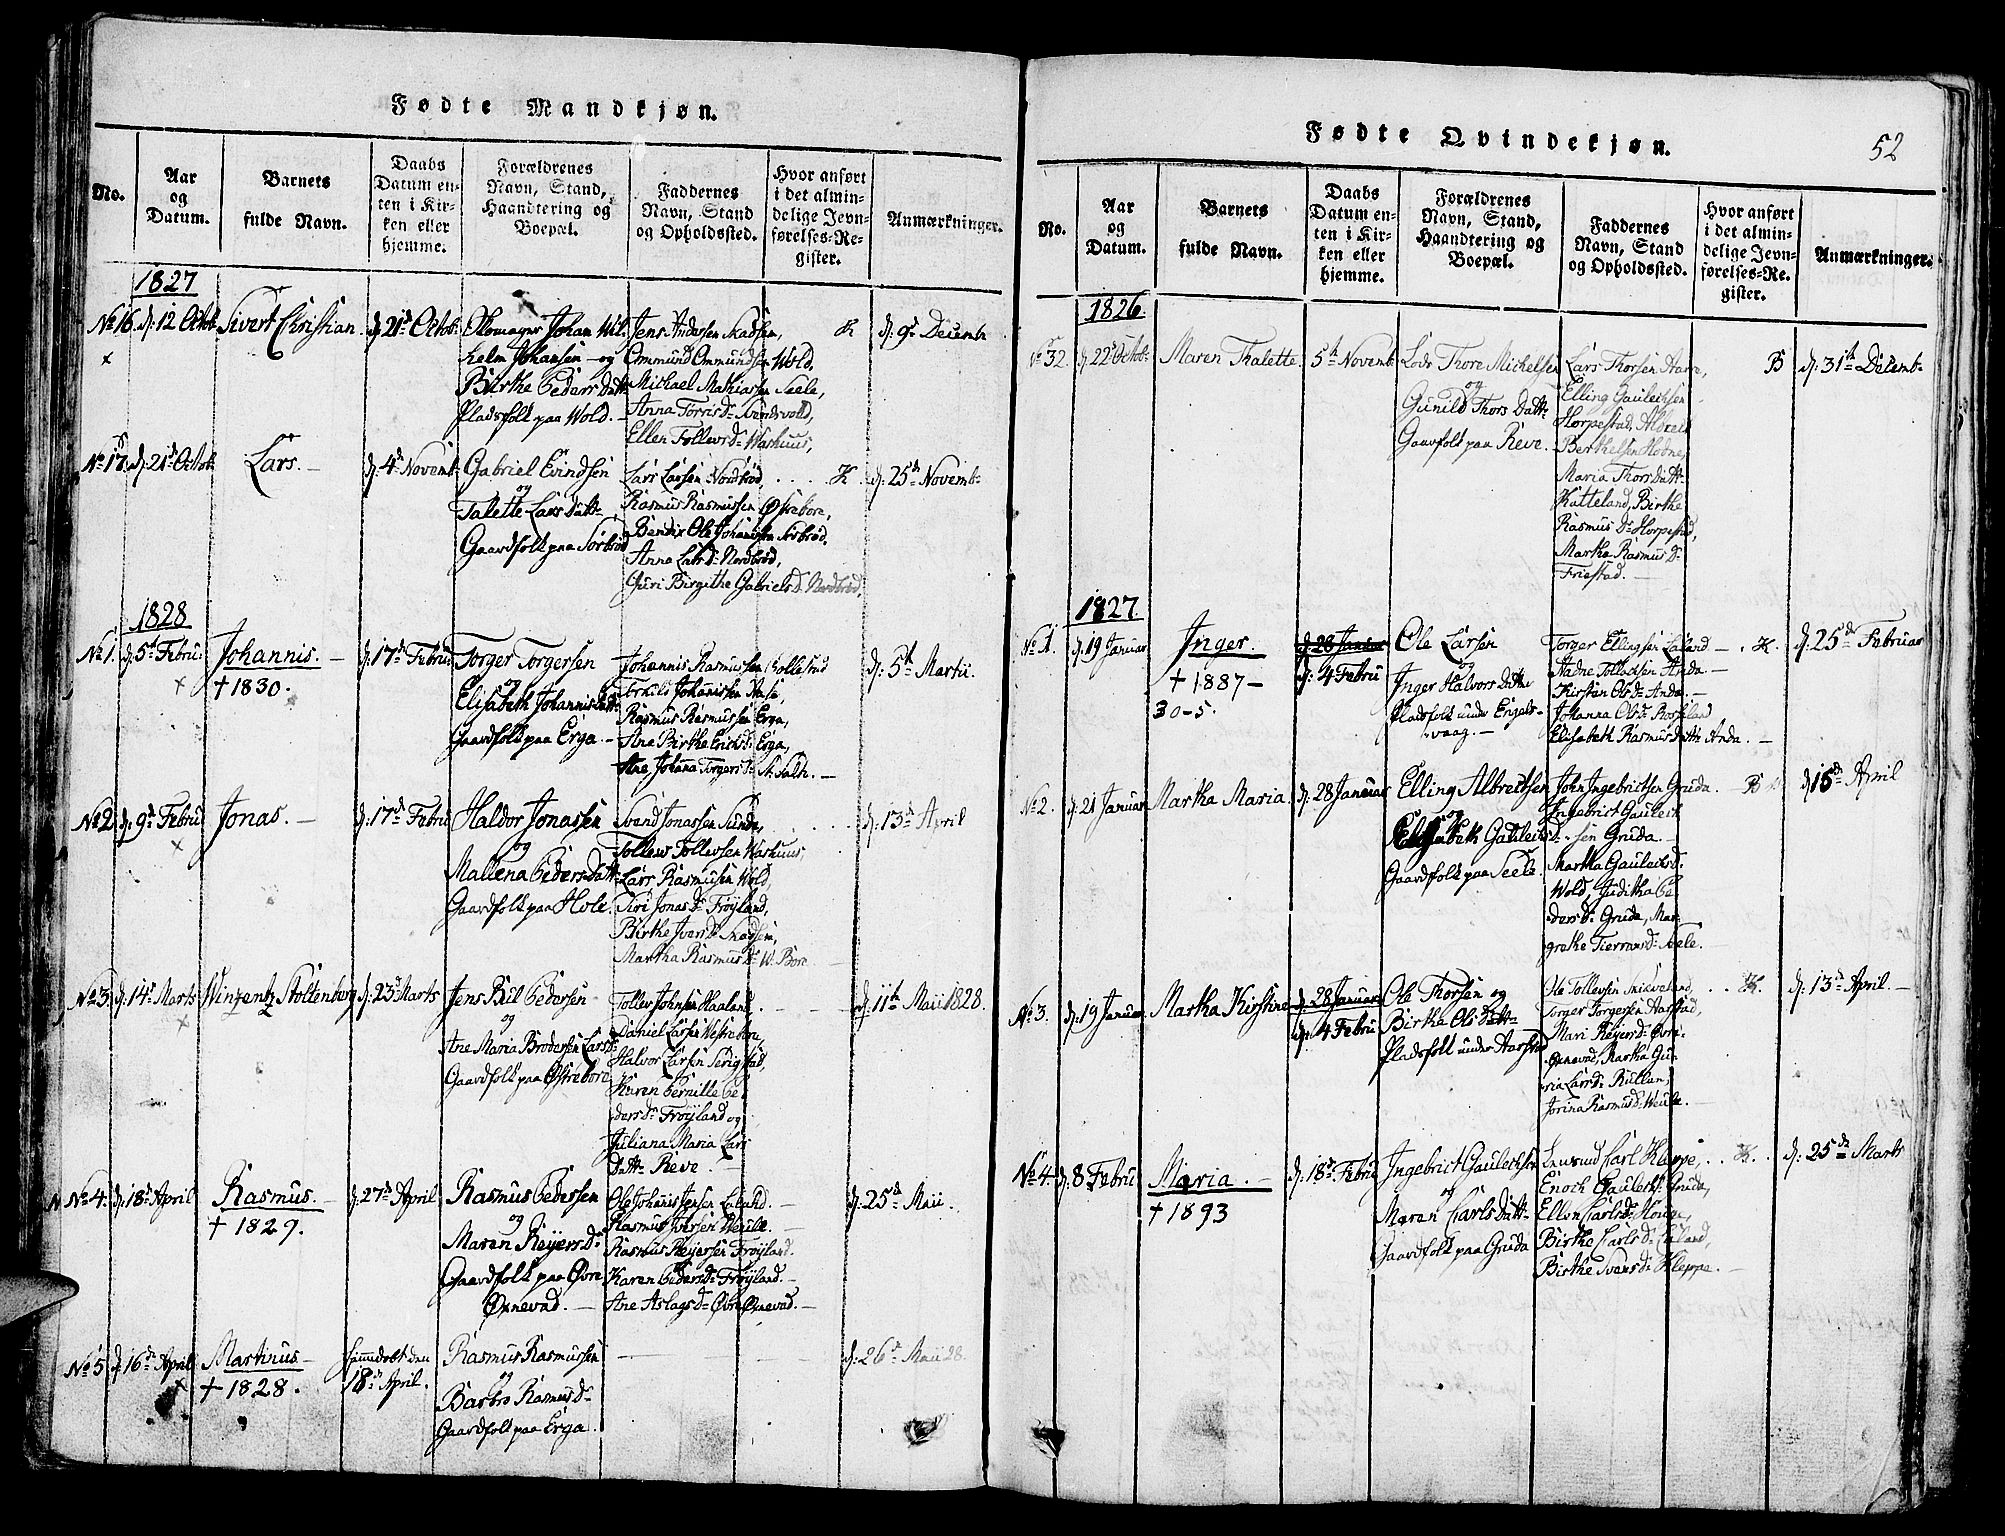 Fødte Mandkjøn.
No.
Aar
og
Datum.
Barnets
fulde Navn.
Daabs
Datum en-
ten i Kir-
ken eller
hjemme.
Forældrenes
Navn, Stand,
Haandtering og
Boepæl.
Faddernes
Navn, Stand
og Opholdssted.
Hvor anført
i det almin-
delige Jevn-
førelses-Re-
gister.
Anmærkninger.
1827
No 16. d: 12 Octob. Sivert Christian. d: 21d Octob.
Johan Wil-
helm Johansen og
Birthe Peders Datt:
Pladsfolk paa Wold. -
Jens Andersen Skadsem,
Ommund Ommundsen Wold,
Michael Mathiassen Seele,
Anna Torris D:
Ellen Tollevs D: Washuus,
K d: 9d Decemb
No 17. d: 21d Octob. Lars. - d: 4d Novemb.
Gabriel Evindsen
og
Talette Lars Datt:
Gaardfolk paa Sørbrød
Lars Larsen Nordbrød,
Rasmus Rasmussen Østrebore,
Ole Johannsen Sørbrød.
Anna Lars D: Nordbrød,
Guri Birgithe Gabriels D. Nordbrød.
K. d: 25d Novemb:
1828
No 1. d: 5d Febru Johannis. - d: 17d Febru
† 1830.
Torger Torgersen
og
Elisabeth Johannis Datt:
Gaardfolk paa Erga. -
Johannis Rasmussen
Torkild Johannissen
Rasmus Rasmussen Erga,
Ane Birthe Erichs D: Erga,
Ane Johana Torgers D:
d: 5th Martii.
No 2. d: 9d Febru Jonas. - d: 17d Febru
Haldor Jonassen
og
Mallena Peders Datt:
Gaardfolk paa Hole.
Svend Jonassen Sunde,
Tollew Tollevsen Washuus,
Lars Rasmusen Wold,
Siri Jonas D: Frøyland,
Birthe Ivers D: Skadsem,
Martha Rasmus D: W: Bore
d: 13d April
No 3. d: 14d Marts Winzentz Stoltenberg d: 23d Marts
Jens Bul Pedersen
og
Ane Maria Brodersen Lars D:
Gaardfolk paa Østrebore
Tollev Johnsen Haaland.
Daniel Larsen Vestrebore,
Halvor Larsen Serigstad,
Karen Pernille Pe-
ders D: Frøyland og
Juliana Maria Lars
Datt: Reve. -
d: 11th Maii 1828.
No 4. d: 18d April Rasmus. - d: 27d April
† 1829.
Rasmus Pedersen
og
Maren Reijers D:
Gaardfolk paa Øvre
Ørnevad. -
Ole Johannis Jensen Laland.
Rasmus Iversen Weule.
Rasmus Reijersen Frøyland.
Karen Peders D: Frøyland. -
Ane Aslags D: Øvre Ørnevad. -
d: 25d Maii.
No 5. d: 16d April Martinus -
† 1828.
hjemedøbt den
18d April.
Rasmus Rasmussen
og
Barbro Rasmus D:
Gaardfolk paa Erga.
d: 26d Maii 28.
Fødte Qvindekjøn.
52
No.
Aar
og
Datum.
Barnets
fulde Navn.
Daabs
Datum en-
ten i Kir-
ken eller
hjemme.
Forældrenes
Navn, Stand,
Haandtering og
Boepæl.
Faddernes
Navn, Stand
og Opholdssted.
Hvor anført
i det almin-
delige Jevn-
førelses-Re-
gister.
Anmærkninger.
1826.
No 32. d: 22d Octob. Maren Thalette. 5th Novemb.
Lods Thore Michelsen
og
Gunild Thors Datt:
Gaardfolk paa Reve.
Lars Thorsen
Elling Gauletsen
Horpestad,
Berthelsen Hodne,
Maria Thors Datt:
Katteland, Birthe
Rasmus D: Horpestad,
Martha Rasmus D:
Friestad. -
B d: 31th Decemb:
1827.
No 1. d: 19 Januar Inger. d: 28 Januar
d: 4 Febru
† 1887 -
30-5.
Ole Larsen
og
Inger Halvors Datter
Pladsfolk under Engels-
vaag. -
Torger Ellingsen Laland -
Stadne Tollevsen Anda -
Kirsten Ols D: Anda. -
Johanna Ols D:
Elisabeth Rasmus Datt: Anda. -
K. d: 25d Februar
No 2. d: 21 Januar Martha Maria. d: 28 Januar
Elling Albretsen
og
Elisabeth Gaulets D:
Gaardfolk paa Seele.
John Ingebritsen Gruda.
Ingebrict Gaulet-
sen Gruda. -
Martha Gaulets D.
Wold, Juditha Pe-
ders D: Gruda, Mar-
grethe Tierrans D: Seele.
B d: 15d April
No 3. d: 19 Januar Martha Kirstine d: 28 Januar
d: 4 Febru
Ole Thorsen og
Birtha Ols Datt:
Pladsfolk under Aarstad
Ole Tollevsen
Torger Torgersen Aarstad,
Mari Reijers D: Øvre-
Ørnevad, Martha Gu-
ria Lars D:
Jorina Rasmus D: Weule. -
K. d: 13d April. -
No 4. d: 8 Febru Maria. - d: 18d Febru
† 1893
Ingebrict Gauletsen
og
Maren Carls Datt:
Gaardfolk paa Gruda
Carl Kleppe,
Enoch Gaulets: Gruda,
Ellen Carls D: Houge,
Birthe Carls D: Laland,
Birthe Svens D: Kleppe. -
K. d: 25d Marts